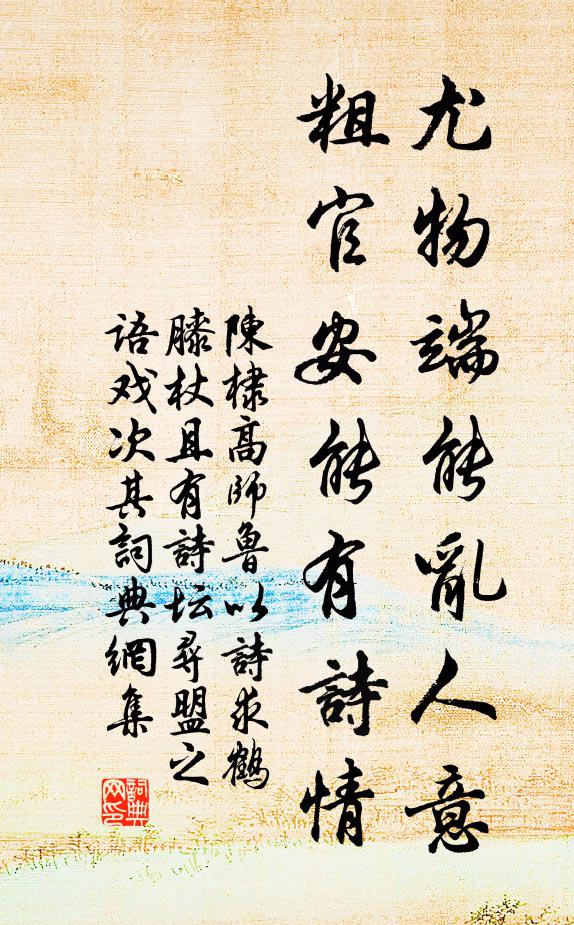 尤物端能亂人意
粗官安能有詩情
陳棣高師魯以詩求鶴
膝杖且有詩坛尋盟之
语戏次其詞典網集
詞典網印